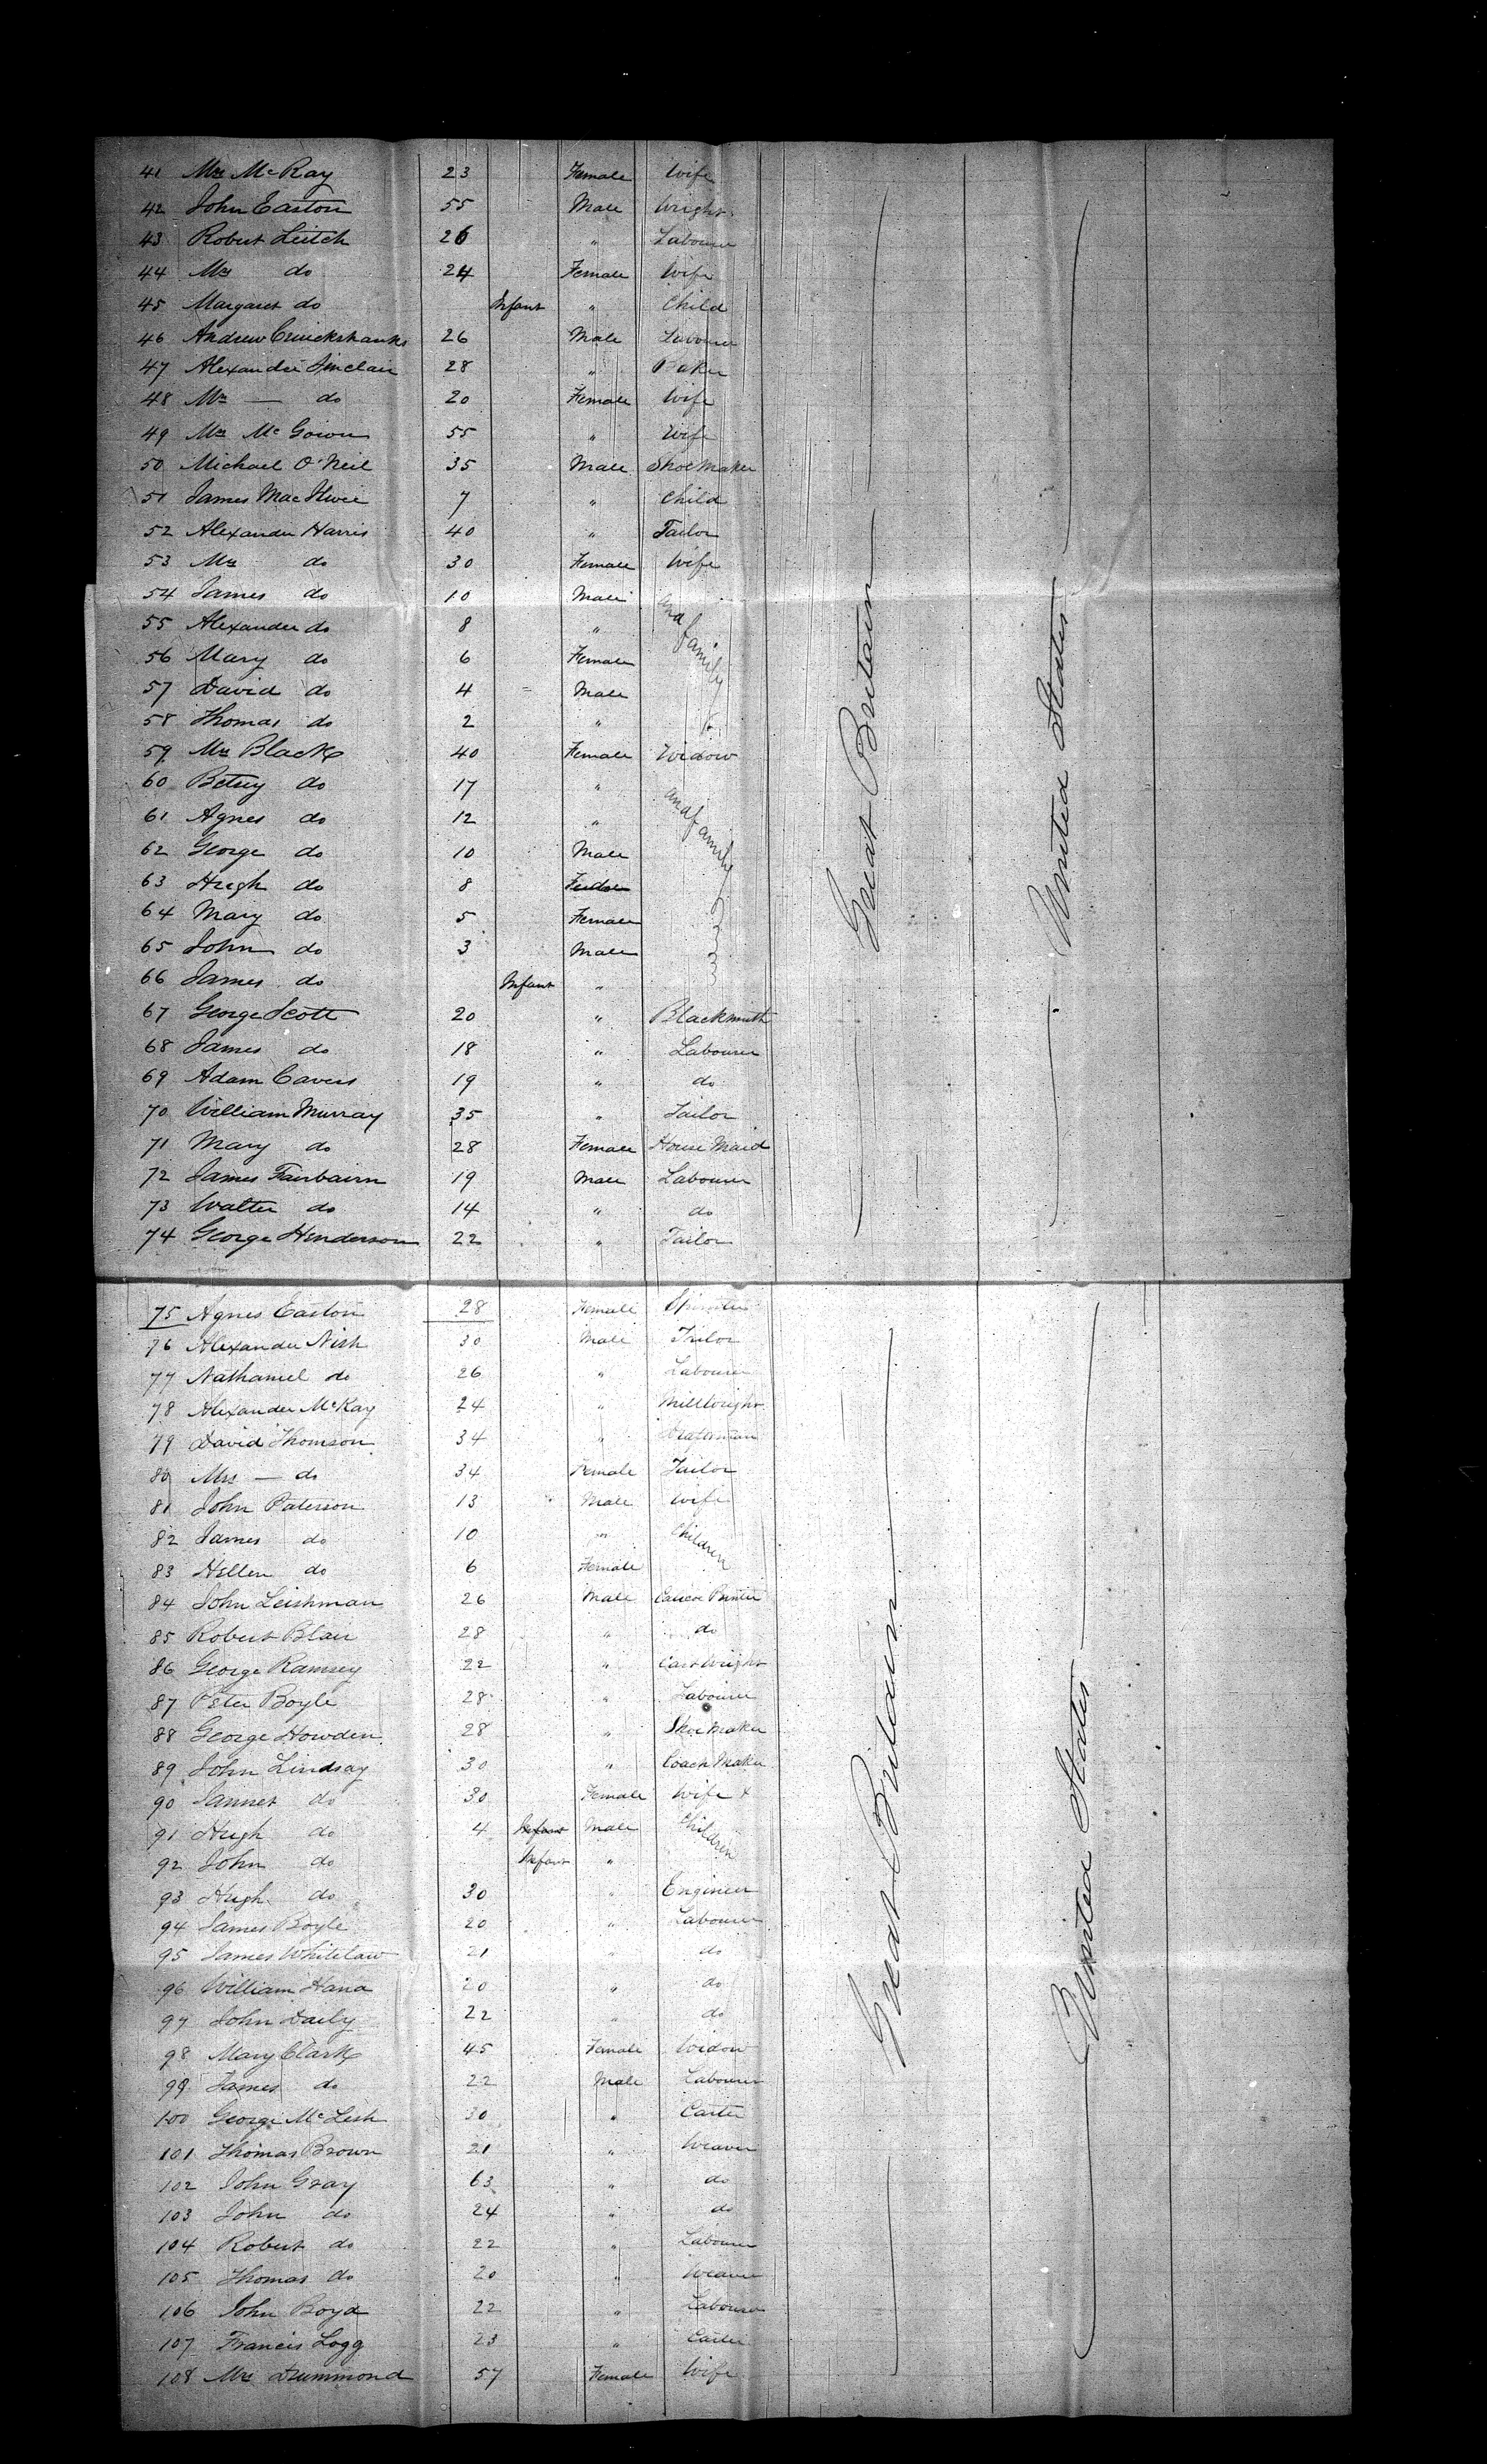 41 Mrs McKay 23 Female Wife
42 John Easton 55 Male Wright
43 Robert Leitch 26 " Labourer
44 Mrs do 24 Female Wife
45 Margaret do Infant " Child
46 Andrew Cruickshanks 26 Male Labourer
47 Alexander Sinclair 28 " Baker
48 Mrs — do 20 Female Wife
49 Mrs McGown 55 " Wife
50 Michael O'Neil 35 Male Shoe Maker
51 James 7 " Child
52 Alexander Harris 40 " Tailor
53 Mrs do 30 Female Wife
54 James do 10 Male and family
55 Alexander do 8 "
56 Mary do 6 Female
57 David do 4 Male
58 Thomas do 2 "
59 Mrs Black 40 Female Widow
60 Betsy do 17 " and family
61 Agnes do 12 "
62 George do 10 Male
63 Hugh do 8
64 Mary do 5 Female
65 John do 3 Male
66 James do Infant "
67 George Scott 20 " Blacksmith
68 James do 18 " Labourer
69 Adam Cavers 19 " do
70 William Murray 35 " Tailor
71 Mary do 28 Female House Maid
72 James Fairbairn 19 Male Labourer
73 Walter do 14 " do
74 George Henderson 22 " Tailor
Great Britain
United States
75 Agnes Easton 28 Female Spinster
76 Alexander Nish 30 Male Tailor
77 Nathaniel do 26 " Labourer
78 Alexander McKay 24 " Millwright
79 David Thomson 34 "
80 Mrs — do 34 Female Tailor
81 John Paterson 13 Male Wife
82 James do 10 " Children
83 Hellen do 6 Female
84 John Leishman 26 Male Calicoe Printer
85 Robert Blair 28 " do
86 George Ramsey 22 " Cart Wright
87 Peter Boyle 28 " Labourer
88 George Howden 28 " Shoe Maker
89 John Lindsay 30 " Coach Maker
90 Jannet do 30 Female Wife &
91 Hugh do 4 Infant Male Children
92 John do Infant "
93 Hugh do 30 " Engineer
94 James Boyle 20 " Labourer
95 James Whitelaw 21 " do
96 William Hana 20 " do
97 John Daily 22 " do
98 Mary Clark 45 Female Widow
99 James do 22 Male Labourer
100 George McLesh 30 " Carter
101 Thomas Brown 21 " Weaver
102 John Gray 63 " do
103 John do 24 " do
104 Robert do 22 " Labourer
105 Thomas do 20 " Weaver
106 John Boyd 22 " Labourer
107 Francis Logg 23 " Carter
108 Mrs Drummond 57 Female Wife
Great Britain
United States